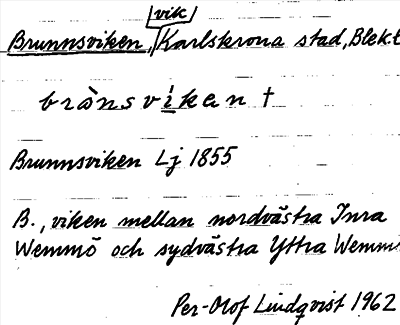 vik
Brunnsviken, Karlskrona stad, Blek.
brånsvikent
Brunnsviken Lj 1855
B., viken mellan nordvästra Inra
Wemmö och sydvästra Yttra Wemmö
Per-Olof Lindqvist 1962